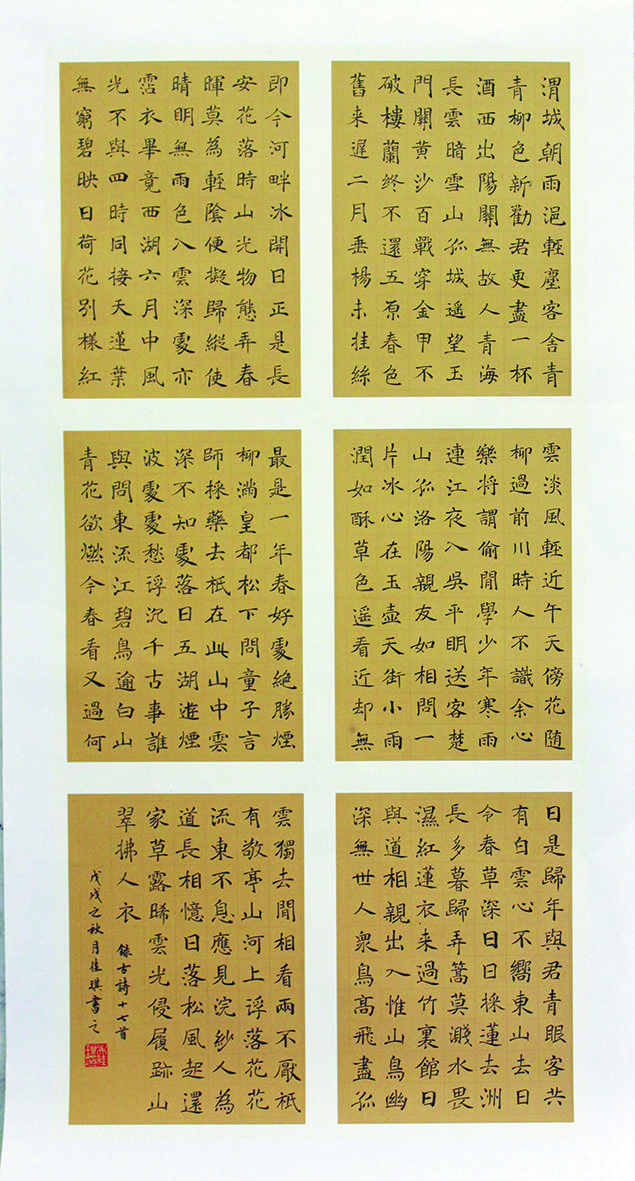 渭城朝雨浥輕塵客舍青
青柳色新勸君更盡一杯
酒西出陽關無故人青海
長雲暗雪山孤城遥望玉
門關黄沙百戰穿金甲不
破樓蘭終不還五原春色
舊来遲二月垂楊未挂絲
即今河畔冰開日正是長
安花落時山光物態弄春
暉莫為輕陰便擬歸縱使
晴明無雨色入雲深處亦
霑衣畢竟西湖六月中風
光不與四時同接天蓮葉
無窮碧映日荷花别樣紅
雲淡風輕近午天傍花随
柳過前川時人不識余心
樂將謂偷閒學少年寒雨
連江夜入吳平明送客楚
山孤洛陽親友如相問一
片冰心在玉壺天街小雨
潤如酥草色遥看近却無
最是一年春好處絶勝煙
柳滿皇都松下問童子言
師採藥去祇在此山中雲
深不知處落日五湖遊煙
波處處愁浮沉千古事誰
與問東流江碧鳥逾白山
青花欲燃今春看又過何
日是歸年與君青眼客共
有白雲心不嚮東山去日
令春草深日日採蓮去洲
長多暮歸弄篙莫濺水畏
濕紅蓮衣来過竹裏館日
與道相親出入惟山鳥幽
深無世人衆鳥高飛盡孤
雲獨去閒相看兩不厭祇
有敬亭山河上浮落花花
流東不息應見浣紗人為
道長相憶日落松風起還
家草露晞雲光侵履跡山
翠拂人衣
錄古詩十七首
戊戌之秋月佳琪書之